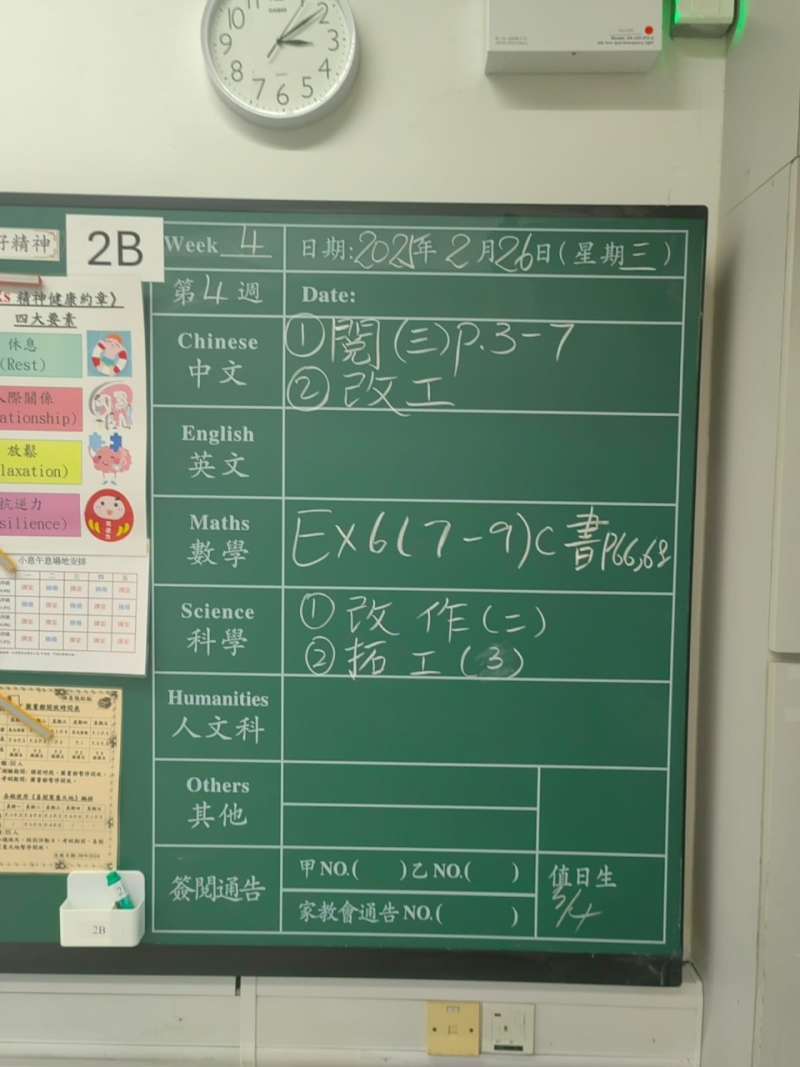 10 2
9 3
8 4
7 6 5
CASIO
QUARTZ
好精神
2B
Week 4
日期:2025年2月26日(星期三)
第4週
Date:
精神健康約章》
四大要素
休息
(Rest)
人際關係
ationship)
放鬆
laxation)
抗逆力
silience)
Chinese
中文
①閱(三)P.3-7
②改工
English
英文
Maths
數學
Ex6(7-9)C 書P66,68
Science
科學
①改作(二)
②拓工(3)
Humanities
人文科
Others
其他
簽閱通告
甲NO.( )乙NO.( )
家教會通告NO.( )
值日生
3/4
小息午息場地安排
圖書館開放時間表
2B